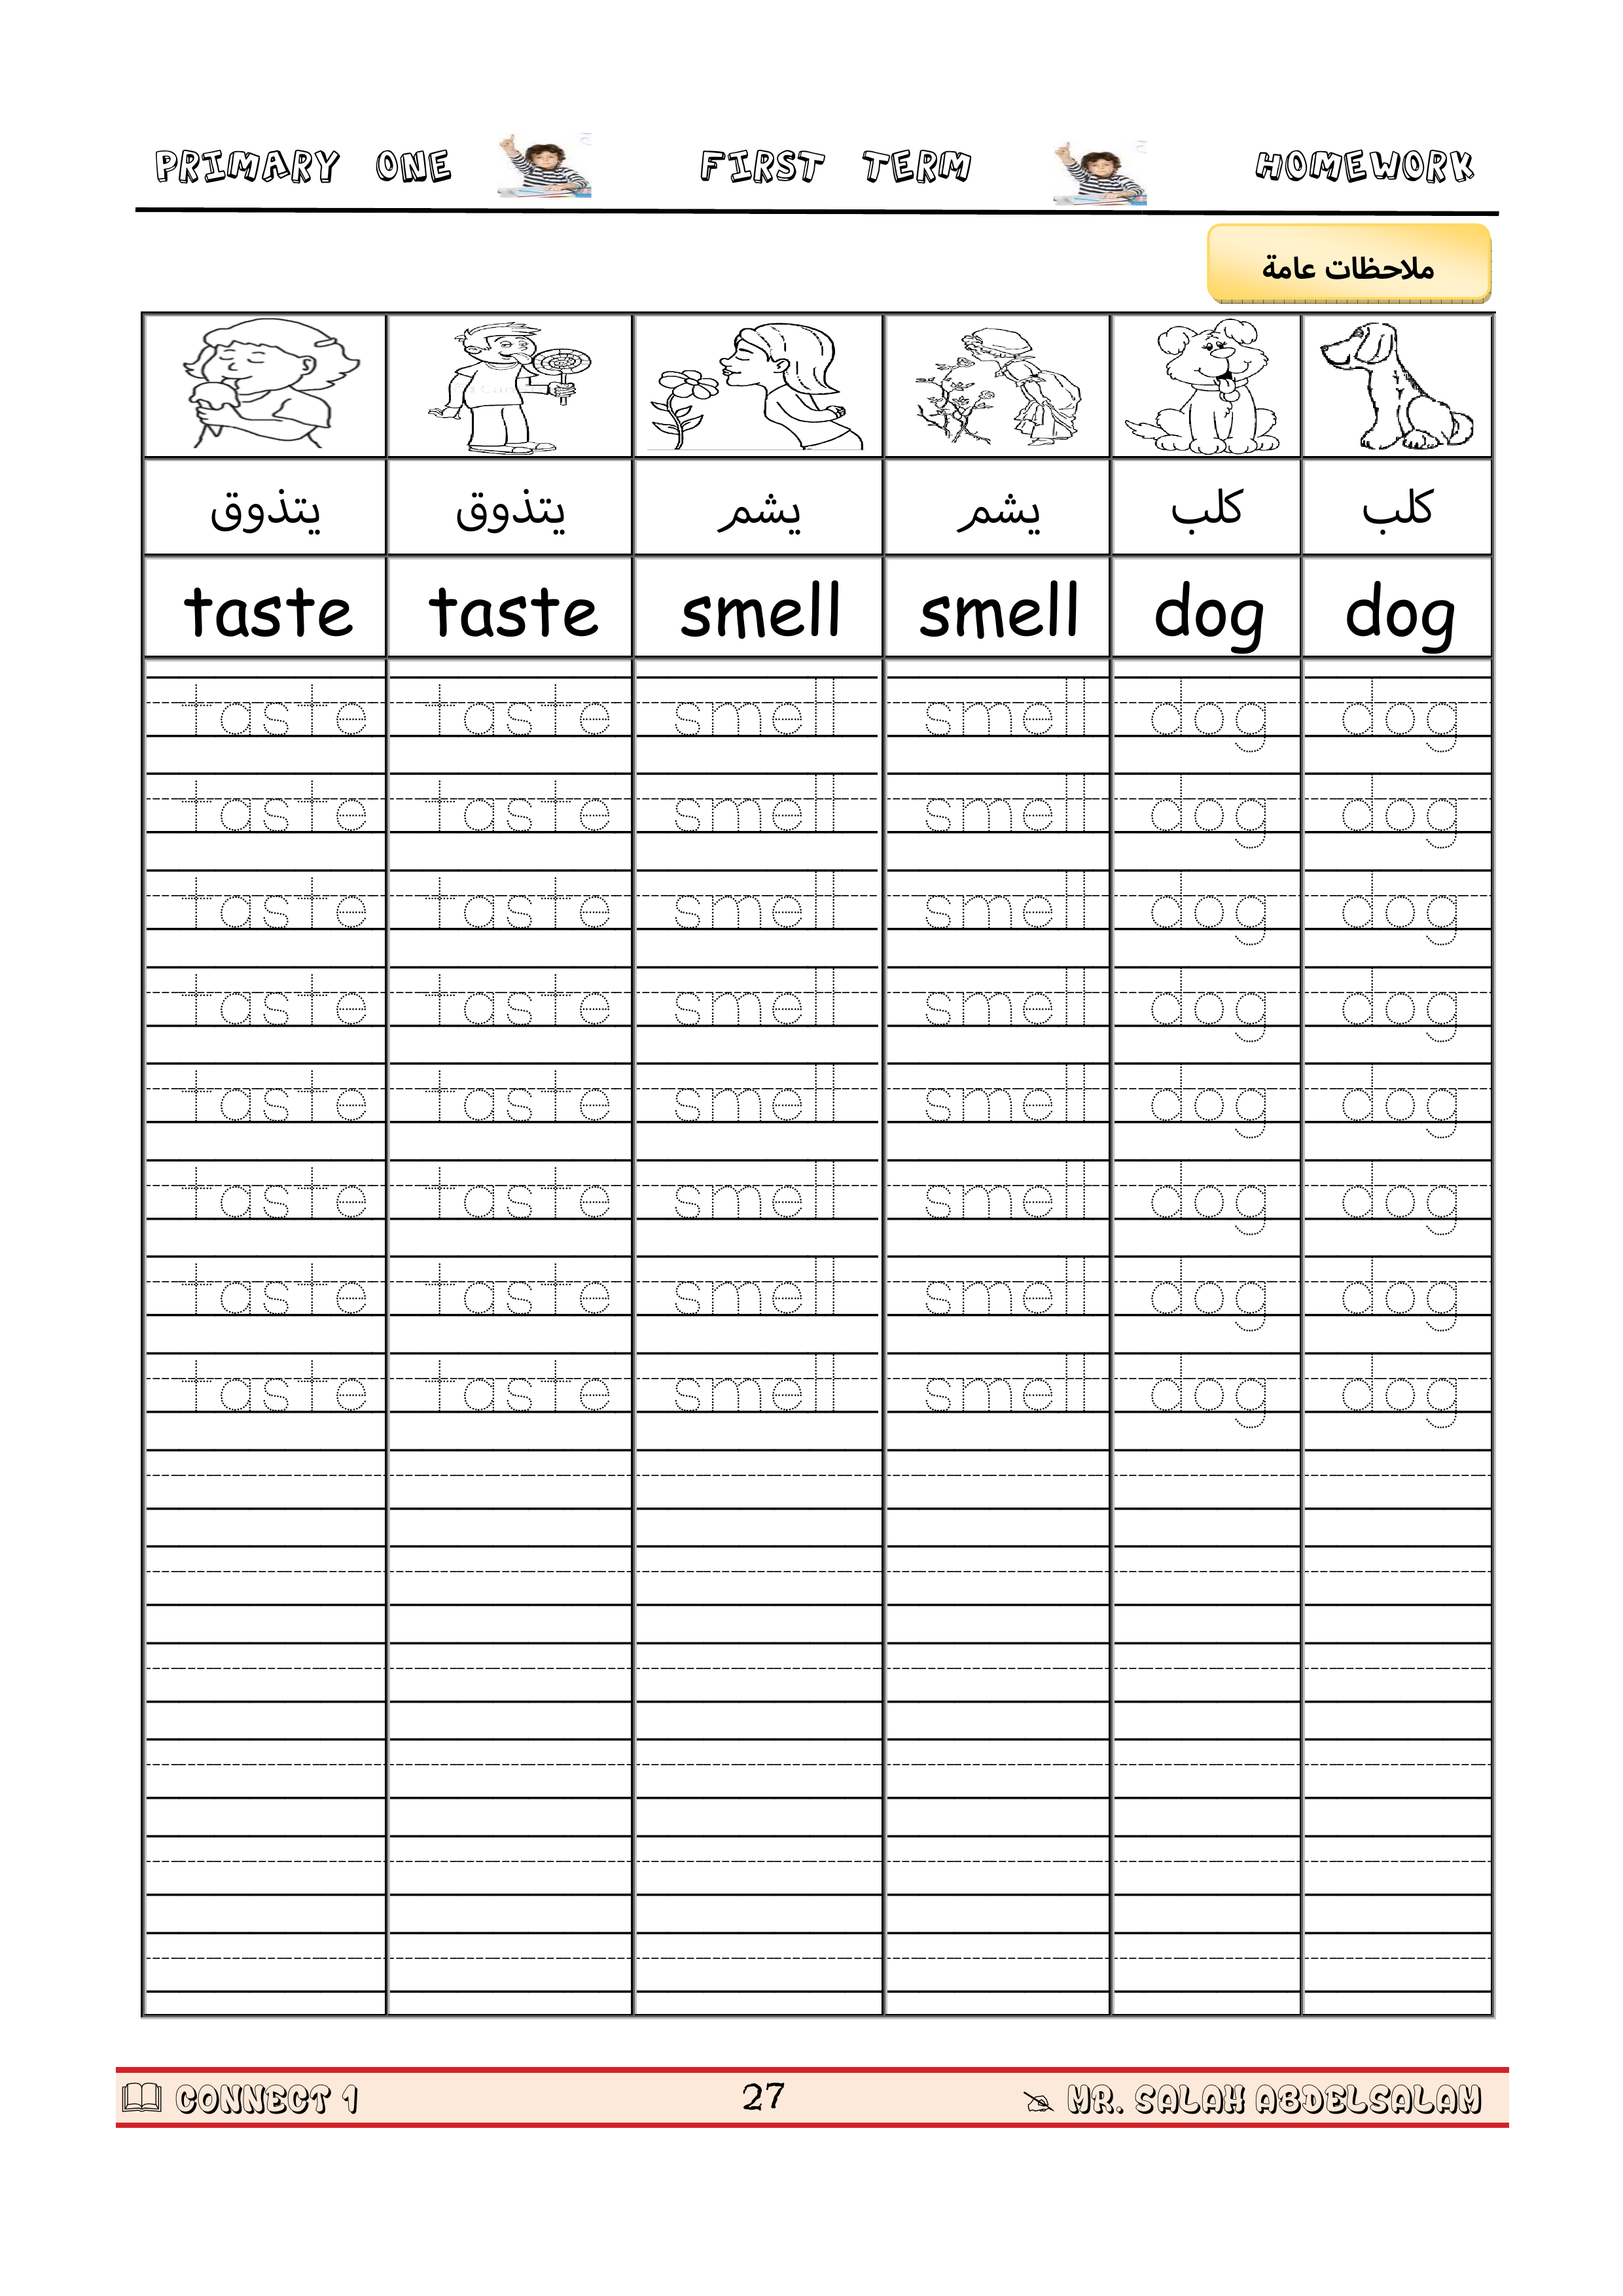 PRIMARY ONE FIRST TERM HOMEWORK
ملاحظات عامة
يتذوق يتذوق يشم يشم كلب كلب
taste taste smell smell dog dog
taste taste smell smell dog dog
taste taste smell smell dog dog
taste taste smell smell dog dog
taste taste smell smell dog dog
taste taste smell smell dog dog
taste taste smell smell dog dog
taste taste smell smell dog dog
taste taste smell smell dog dog
CONNECT 1 27 MR. SALAH ABDELSALAM